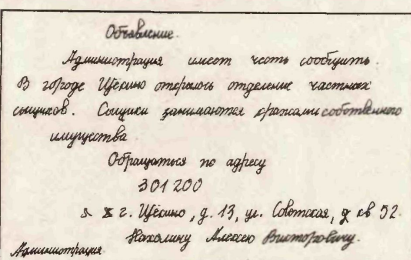 Объявление.
Администрация имеет честь сообщить.
В городе Щёкино открылось отделение частных
сыщиков. Сыщики занимаются кражами собственного
имущества
Обращаться по адресу
301200
г. Щёкино, д. 13, ул. Советская, кв 52.
Алексею Викторовичу.
Администрация